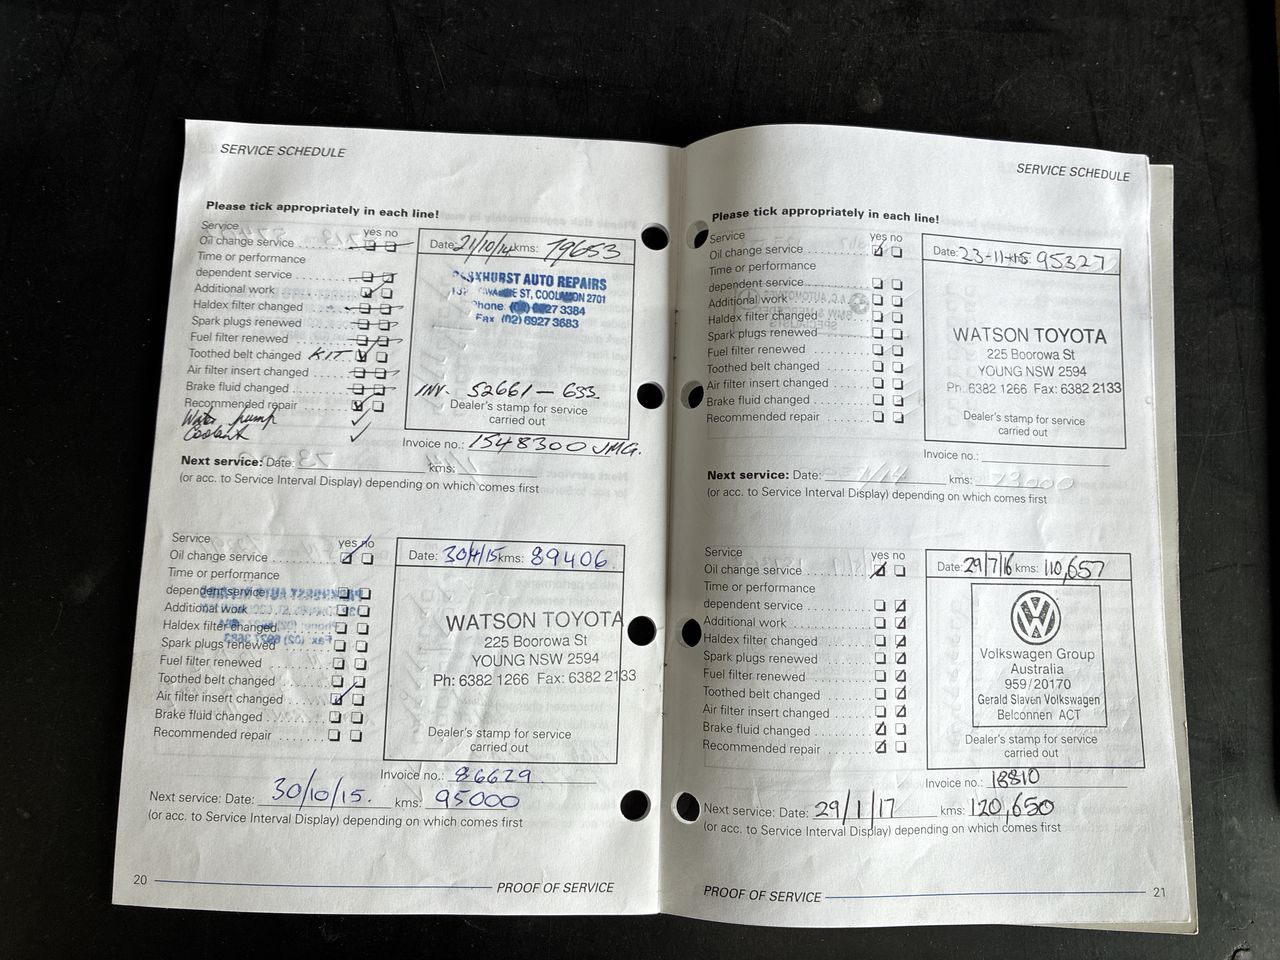 SERVICE SCHEDULE
Please tick appropriately in each line!
Service yes no
Oil change service
Time or performance
dependent service
Additional work
Haldex filter changed
Spark plugs renewed
Fuel filter renewed
Toothed belt changed KIT
Air filter insert changed
Brake fluid changed
Recommended repair
Water pump
Coolant
Date: 21/10/14 kms: 79653
AUTO REPAIRS
ST, COOLAMON 2701
Phone (02) 6927 3384
Fax (02) 6927 3683
INV. 52661-633
Dealer's stamp for service
carried out
Invoice no.: 1548300 JMG.
Next service: Date: kms:
(or acc. to Service Interval Display) depending on which comes first
Service yes no
Oil change service
Time or performance
dependent service
Additional work
Haldex filter changed
Spark plugs renewed
Fuel filter renewed
Toothed belt changed
Air filter insert changed
Brake fluid changed
Recommended repair
Date: 30/4/15 kms: 89406
WATSON TOYOTA
225 Boorowa St
YOUNG NSW 2594
Ph: 6382 1266 Fax: 6382 2133
Dealer's stamp for service
carried out
Invoice no.: 86629
Next service: Date: 30/10/15. kms: 95000
(or acc. to Service Interval Display) depending on which comes first
20 PROOF OF SERVICE
SERVICE SCHEDULE
Please tick appropriately in each line!
Service yes no
Oil change service
Time or performance
dependent service
Additional work
Haldex filter changed
Spark plugs renewed
Fuel filter renewed
Toothed belt changed
Air filter insert changed
Brake fluid changed
Recommended repair
Date: 23-11-15 95327
WATSON TOYOTA
225 Boorowa St
YOUNG NSW 2594
Ph: 6382 1266 Fax: 6382 2133
Dealer's stamp for service
carried out
Invoice no.:
Next service: Date: kms:
(or acc. to Service Interval Display) depending on which comes first
Service yes no
Oil change service
Time or performance
dependent service
Additional work
Haldex filter changed
Spark plugs renewed
Fuel filter renewed
Toothed belt changed
Air filter insert changed
Brake fluid changed
Recommended repair
Date: 29/7/16 kms: 110,657
Volkswagen Group
Australia
959/20170
Gerald Slaven Volkswagen
Belconnen ACT
Dealer's stamp for service
carried out
Invoice no.: 18810
Next service: Date: 29/1/17 kms: 120,650
(or acc. to Service Interval Display) depending on which comes first
PROOF OF SERVICE 21